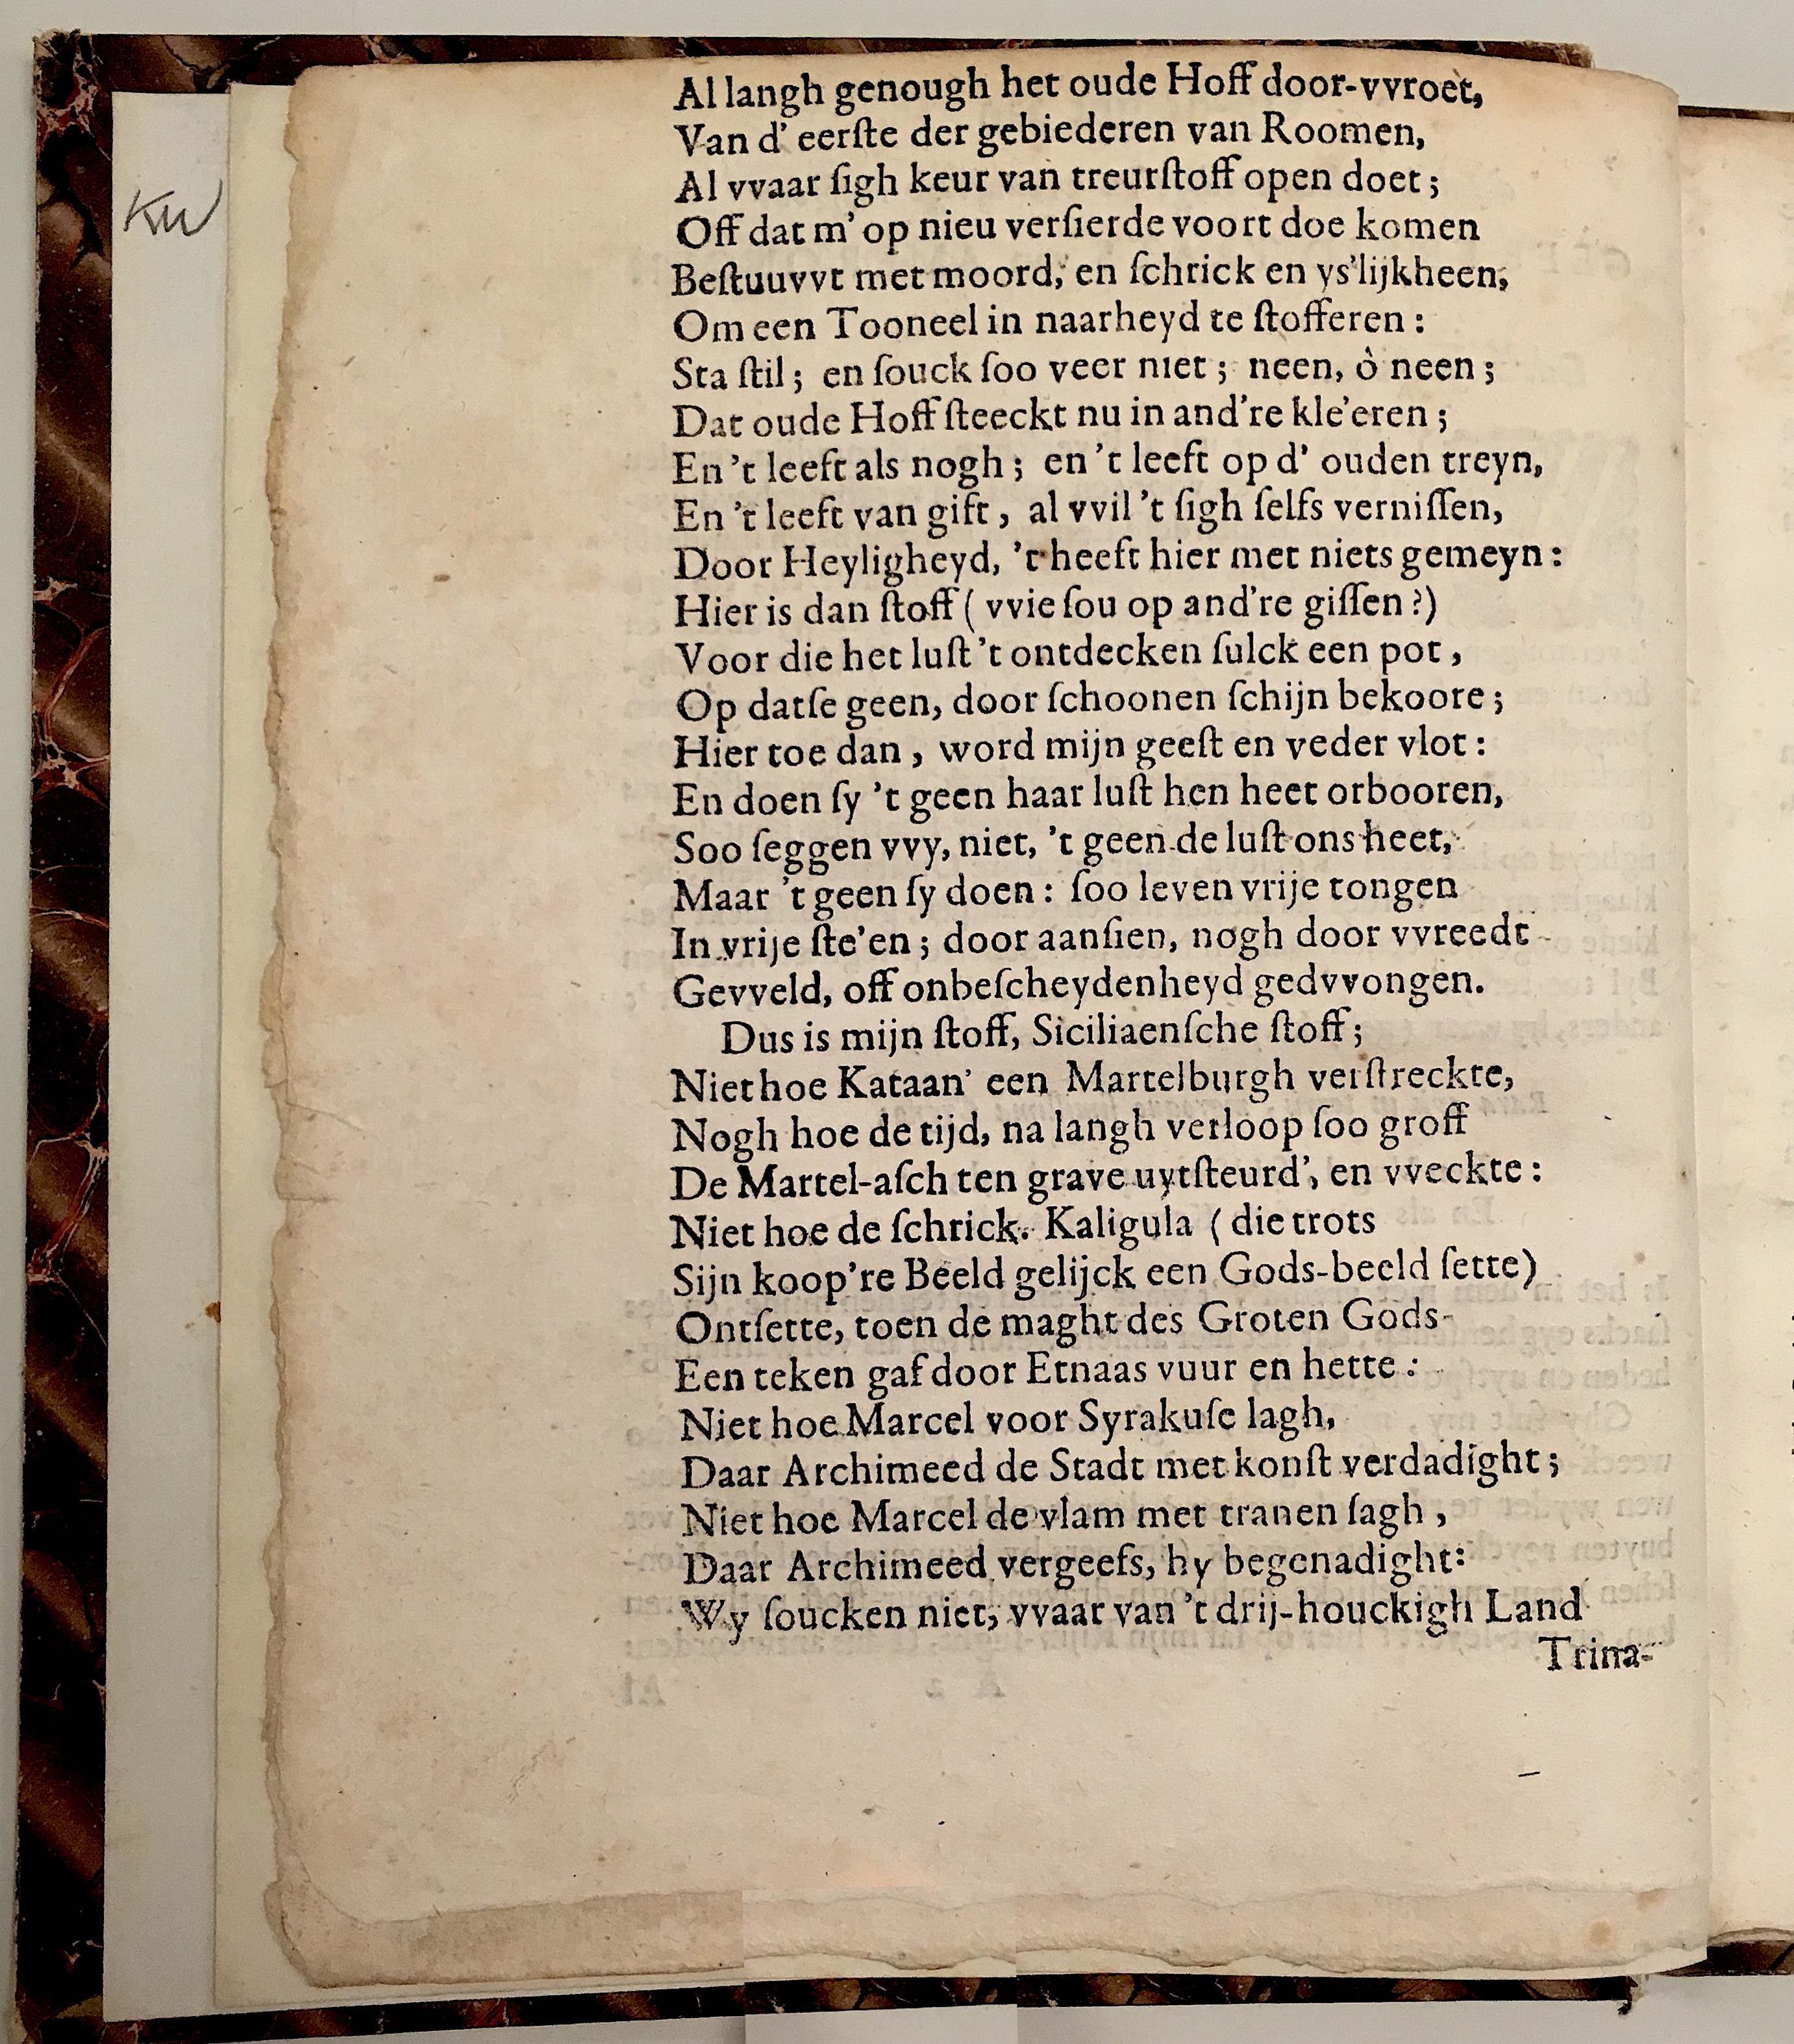 KW
Al langh genough het oude Hoff door-vvroet,
Van d' eerſte der gebiederen van Roomen,
Al vvaar ſigh keur van treurſtoff open doet;
Off dat m' op nieu verſierde voort doe komen
Beſtuuvvt met moord, en ſchrick en ys'lijkheen,
Om een Tooneel in naarheyd te ſtofferen:
Sta ſtil; en ſouck ſoo veer niet; neen, ò neen;
Dat oude Hoff ſteeckt nu in and're kle'eren;
En 't leeft als nogh; en 't leeft op d' ouden treyn,
En 't leeft van gift, al vvil 't ſigh ſelfs verniſſen,
Door Heyligheyd, 't heeft hier met niets gemeyn:
Hier is dan ſtoff ( vvie ſou op and're giſſen?)
Voor die het luſt 't ontdecken ſulck een pot,
Op datſe geen, door ſchoonen ſchijn bekoore;
Hier toe dan, word mijn geeſt en veder vlot:
En doen ſy 't geen haar luſt hen heet orbooren,
Soo ſeggen vvy, niet, 't geen de luſt ons heet,
Maar 't geen ſy doen: ſoo leven vrije tongen
In vrije ſte'en; door aanſien, nogh door vvreedt
Gevveld, off onbeſcheydenheyd gedvvongen.
Dus is mijn ſtoff, Siciliaenſche ſtoff;
Niet hoe Kataan' een Martelburgh verſtreckte,
Nogh hoe de tijd, na langh verloop ſoo groff
De Martel-aſch ten grave uytſteurd', en vveckte:
Niet hoe de ſchrick. Kaligula ( die trots
Sijn koop're Beeld gelijck een Gods-beeld ſette)
Ontſette, toen de maght des Groten Gods
Een teken gaf door Etnaas vuur en hette:
Niet hoe Marcel voor Syrakuſe lagh,
Daar Archimeed de Stadt met konſt verdadight;
Niet hoe Marcel de vlam met tranen ſagh,
Daar Archimeed vergeefs, hy begenadight:
Wy ſoucken niet, vvaar van 't drij-houckigh Land
Trina-